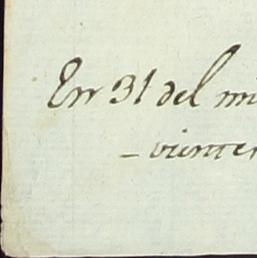 En 31 del mi
- viente